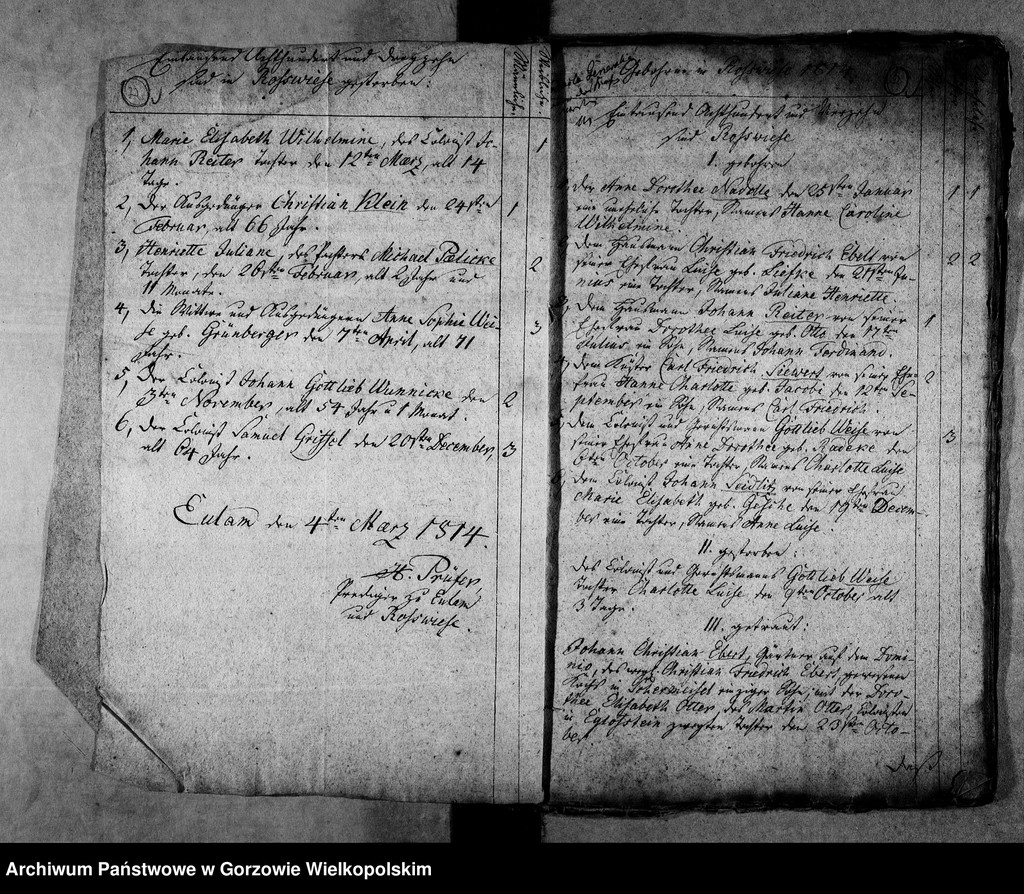 Eintausend Achthundert und dreyzehn
sind in Rosswiese gestorben:
Männliche.
Weibliche.
1, Marie Elisabeth Wilhelmine, des Colonist Jo-
hann Reiter Tochter den 12ten März, alt 14
Tage.
1
2, Der Ausgedinger Christian Klein den 24sten
Februar, alt 66 Jahr.
1
3, Henriette Juliane, des Pastors Michael Paelicke
Tochter, den 26sten Februar, alt 2 Jahr und
11 Monate.
2
4, die Wittwe und Ausgedingerin Anne Sophie Wei-
se geb. Grünberger den 7ten April, alt 71
Jahr.
3
5, Der Colonist Johann Gottlieb Wunnicke den
3ten November, alt 54 Jahr u 1 Monat.
2
6, der Colonist Samuel Grissel den 20sten December,
alt 64 Jahr.
3
Eulam den 4ten März 1814.
H. Prüfer,
Prediger zu Eulam
und Rosswiese.
Gebohren in Rosswiese 1814
Eintausend Achthundert und Vierzehn
sind Rosswiese
I. gebohren
der Anne Dorothee Nadolle den 25sten Januar
eine uneheliche Tochter, Namens Hanne Caroline
Wilhelmine.
1 1
dem Hausmann Christian Friedrich Ebelt von
seiner Ehefrau Luise geb. Liefke den 21sten Ju-
nius eine Tochter, Namens Juliane Henriette
2 2
3, dem Hausmann Johann Reiter von seiner
Ehefrau Dorothee Luise geb. Otto den 17ten
Julius ein Sohn, Namens Johann Ferdinand.
1
4, dem Küster Carl Friedrich Siewert von seiner Ehe-
frau Hanne Charlotte geb. Jacobi den 12ten Se-
ptember ein Sohn, Namens Carl Friedrich.
2
dem Colonist und Gerichtsmann Gottlieb Weise von
seiner Ehefrau Anne Dorothee geb. Radecke den
6ten October eine Tochter, Namens Charlotte Luise
3
dem Colonist Johann Seidlitz von seiner Ehefrau
Marie Elisabeth geb. Gesche den 19ten Decem-
ber eine Tochter, Namens Anne Luise.
II. gestorben:
Des Colonist und Gerichtsmanns Gottlieb Weise
Tochter Charlotte Luise den 9ten October alt
3 Tage.
III. getraut:
Johann Christian Ebert, Gärtner auf dem Domi-
nio, des Christian Friedrich Ebert, gewesenen
Kochs in einziger Sohn, mit der Doro-
thee Elisabeth Otter, des Martin Otter, Colonisten
in Egloffstein zweyten Tochter den 23sten Octo-
ber.
Daß
Archiwum Państwowe w Gorzowie Wielkopolskim